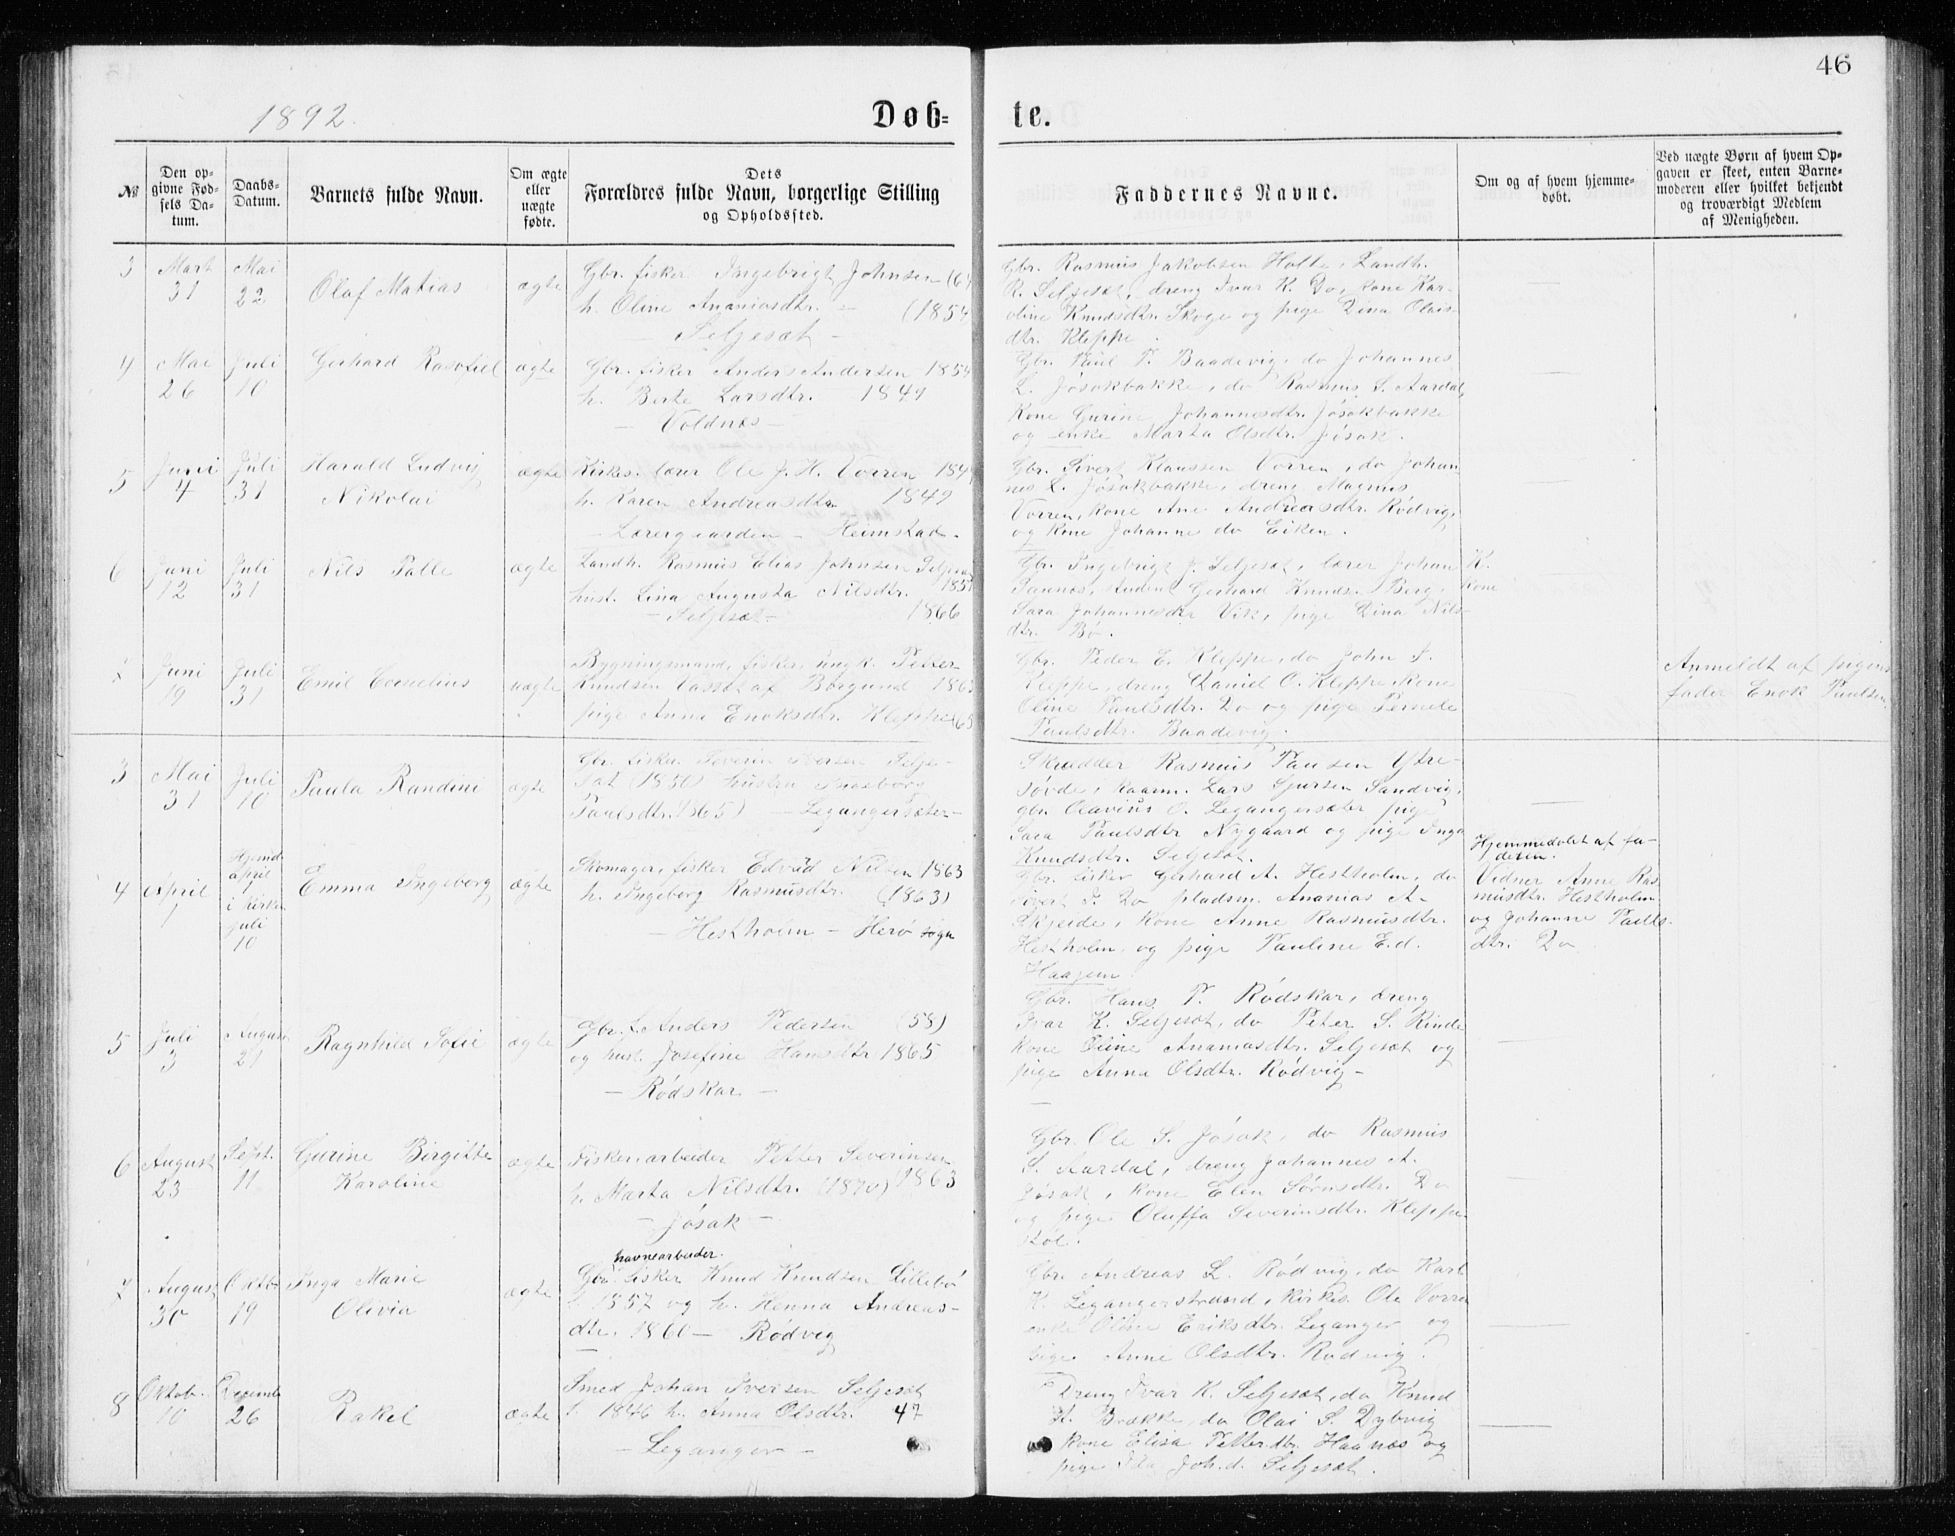 46
1892.
Døb=
te.
№
Den op-
givne Fød-
sels Da-
tum.
Daabs-
Datum.
Barnets fulde Navn.
Om ægte
eller
uægte
fødte.
Dets
Forældres fulde Navn, borgerlige Stilling
og Opholdssted.
Faddernes Navne.
Om og af hvem hjemme-
døbt.
Ved uægte Børn af hvem Op-
gaven er skeet, enten Barne-
moderen eller hvilket bekjendt
og troværdigt Medlem
af Menigheden.
3
Mart
31
Mai
22
Olaf Matias
ægte
Gbr. fisker Ingebrigt Johnsen (64
h. Oline Ananiasdtr. — (1854
— Seljesæt —
Gbr. Rasmus Jakobsen Holte, Landh.
R. Seljesæt, dreng Ivar K. Do, kone Kar-
oline Knudsdtr. Skoge og pige Dina Olais-
dtr. Kleppe.
4
Mai
26
Juli
10
Gerhard
ægte
Gbr. fisker Anders Andersen 1854
h. Berte Larsdtr. 1849
— Voldnes —
Gbr. Paul P. Baadevig, do Johannes
L. Jøsokbakke, do Rasmus S. Aardal,
Kone Gurine Johannesdtr. Jøsokbakke
og enke Marta Olsdtr. Jøsok.
5
Juni
4
Juli
31
Harald Ludvig
Nikolai
ægte
Kirkes. lærer Ole J. H. Vorren
h. Karen Andreasdtr. 1849
— Lærergaarden — Heimstad.
Gbr. Sivert Klaussen Vorren, do Johan
nes L. Jøsokbakke, dreng Magnus
Vorren, kone Ane Andreasdtr. Rødvig,
og kone Johanne do Eiken.
6
Juni
12
Juli
31
Nils Palle
ægte
Landh. Rasmus Elias Johnsen
hust. Lina Augusta Nilsdtr. 1851
— Seljesæt — 1866
Gbr. Ingebrigt J. Seljesæt, lærer Johan K.
Gerhard Knuds. Berg, kone
Sara Johannesdtr Vik, pige Dina Nils-
dtr. Bø.
7
Juni
19
Juli
31
Emil Cornelius
uægte
Bygningsmand, fisker, ungk. Petter
Knudsen af Borgund
pige Anna Enoksdtr. Kleppe (65
Gbr. Peder E. Kleppe, do John J.
Kleppe, dreng Daniel O. Kleppe, kone
Oline Paulsdtr. Do og pige Pernele
Paulsdtr. Baadevig.
Anmeldt af pigens
fader Enok Paulsen.
3
Mai
31
Juli
10
Paula Randini
ægte
Gbr. fisker Severin Iversen Selje-
sæt (1850) hustru Ingeborg
Paulsdtr. 1865) — Legangersæter —
Skrædder Rasmus Paulsen Ytre-
søvde, kaarm. Lars Sjursen Sandvig,
gbr. Olavius O. Legangersæter pige
Sara Paulsdtr Nygaard og pige Inga
Knudsdtr. Seljesæt.
4
April
1
Hjemd.
april
1
i kirken
juli
10
Emma Ingeborg
ægte
Skomager, fisker Edvard Nilsen 1863
h. Ingeborg Rasmusdtr. (1863)
— Hestholm — Herø sogn
Gbr. fisker Gerhard A. Hestholm, do
Sivert J. Do pladsm. Ananias A.
Skjeide, kone Anne Rasmusdtr.
Hestholm, og pige Pauline E.d.
Hjemmedøbt af fa-
deren.
Vidner Anne Ras
musdtr. Hestholm
og Johanne Pauls-
dtr. Do
5
Juli
3
August
21
Ragnhild Sofie
ægte
Gbr. f. Anders Pedersen (58)
og hust. Josefine Hansdtr 1865
— Rødskar —
Gbr. Hans P. Rødskar, dreng
Ivar K. Seljesæt, do Peter S. Rinde
kone Oline Ananiasdtr. Seljesæt og
pige Anna Olsdtr. Rødvig —
6
August
23
Sept.
11
Gurine Birgitte
Karoline
ægte
Fisker, arbeider Petter Severinsen
h. Marta Nilsdtr. (1870) 1863
— Jøsok —
Gbr. Ole S. Jøsok, do Rasmus
S. Aardal, dreng Johannes A.
Jøsok, kone Elen Sørensdtr. Do
og pige Oluffa Severinsdtr. Kleppe
7
August
30
Oktob
19
Inga Marie
Olivia
ægte
havnearbeider.
Gbr. fisker Knud Knudsen Lillebø
f. 1857 og h. Henna Andreas-
dtr. 1860 — Rødvig
Gbr. Andreas L. Rødvig, do Karl
K. Legangerstrand, kirkes. Ole Vorren
enke Oline Eriksdtr. Leganger og
pige Anne Olsdtr. Rødvig.
8
Oktob.
10
Decemb
26
Rakel
ægte
Smed Johan Iversen Seljesæt
f. 1846 h. Anna Olsdtr. 47
— Leganger —
Dreng Ivar K. Seljesæt, do Knud
H. Brække, do Olai S. Dybvig
kone Elisa Petterdtr. Haanæs og
pige Ida Joh.d. Seljesæt.